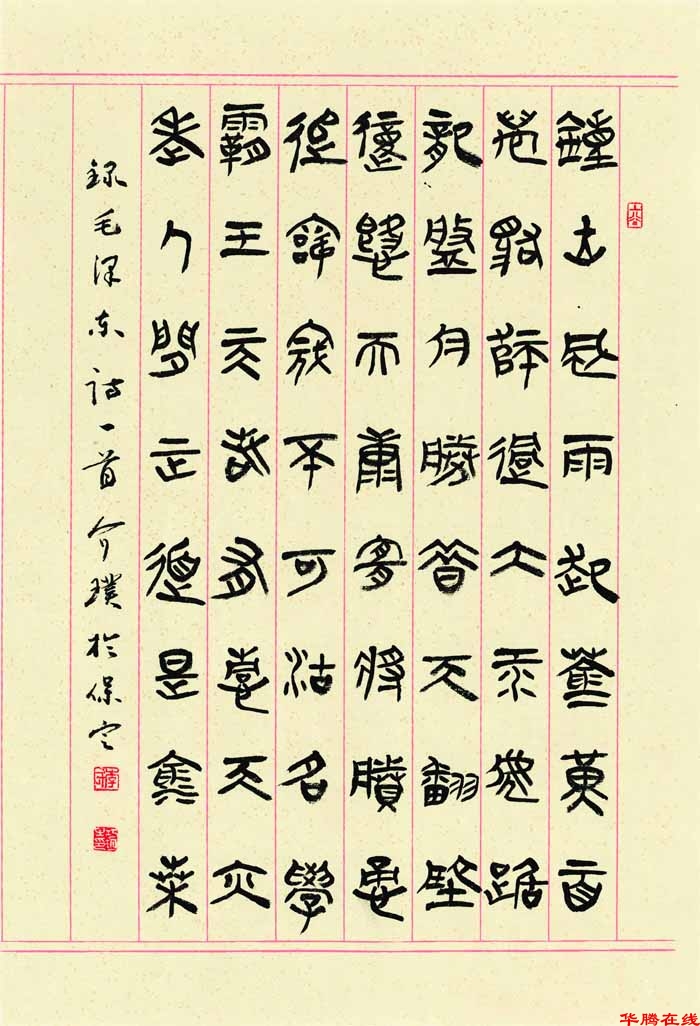 鐘山風雨起蒼黃百
萬雄師過大江虎踞
龍盤今勝昔天翻地
覆慨而慷宜將賸勇
追窮寇不可沽名學
霸王天若有情天亦
老人間正道是滄桑
録毛泽东诗一首介璞於保定
华腾在线